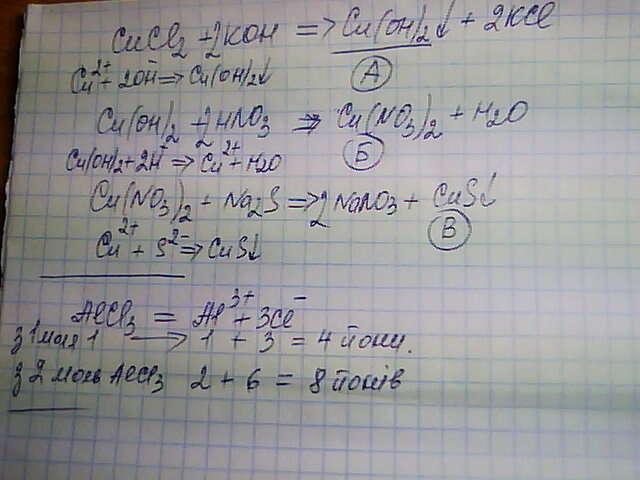 CuCl₂ + 2KOH => Cu(OH)₂↓ + 2KCl
Cu²⁺ + 2OH⁻ => Cu(OH)₂↓ А
Cu(OH)₂ + 2HNO₃ => Cu(NO₃)₂ + H₂O
Cu(OH)₂ + 2H⁺ => Cu²⁺ + H₂O Б
Cu(NO₃)₂ + Na₂S => 2NaNO₃ + CuS↓
Cu²⁺ + S²⁻ => CuS↓ В
AlCl₃ = Al³⁺ + 3Cl⁻
з 1 моля 1 → 1 + 3 = 4 йони.
з 2 моль AlCl₃ 2 + 6 = 8 йонів